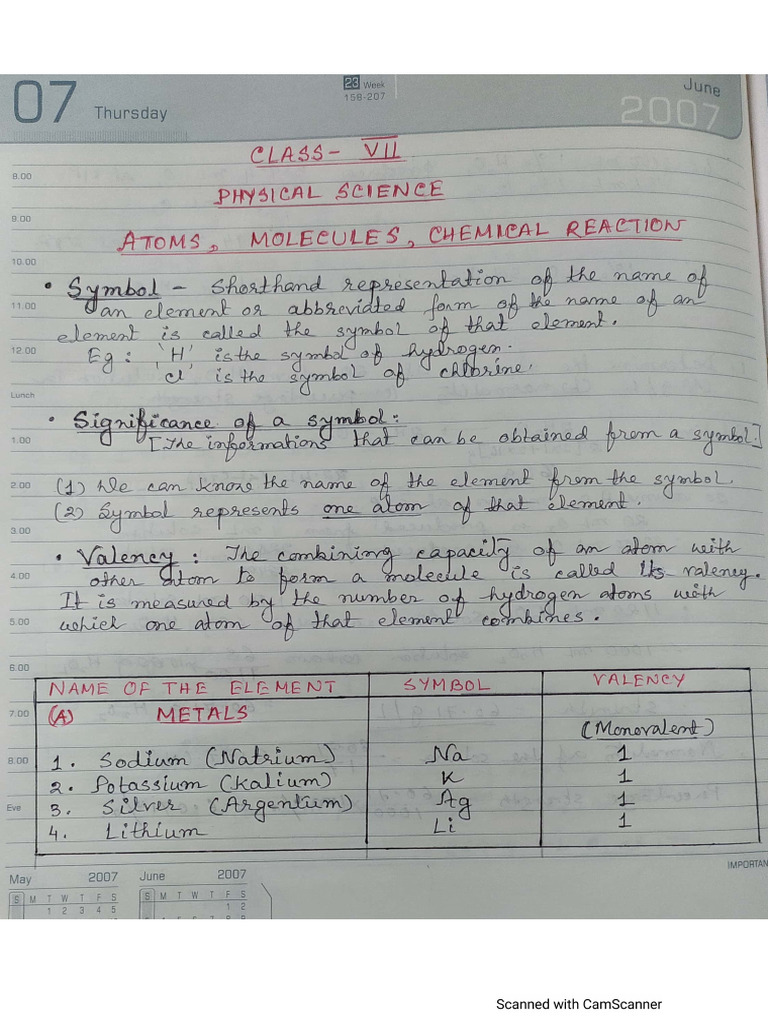 07 Thursday
23 Week
158-207
June
2007
CLASS- VII
8.00
PHYSICAL SCIENCE
9.00
ATOMS, MOLECULES, CHEMICAL REACTION
10.00
• Symbol - Shorthand representation of the name of
11.00
an element or abbreviated form of the name of an
element is called the symbol of that element.
12.00
Eg : 'H' is the symbol of hydrogen.
'Cl' is the symbol of chlorine.
Lunch
• Significance of a symbol:
1.00
[The informations that can be obtained from a symbol.]
2.00
(1) We can know the name of the element from the symbol.
(2) Symbol represents one atom of that element.
3.00
• Valency : The combining capacity of an atom with
4.00
other atom to form a molecule is called its valency.
It is measured by the number of hydrogen atoms with
5.00
which one atom of that element combines.
6.00
NAME OF THE ELEMENT SYMBOL VALENCY
7.00
(A) METALS (Monovalent)
8.00
1. Sodium (Natrium) Na 1
2. Potassium (Kalium) K 1
Eve
3. Silver (Argentum) Ag 1
4. Lithium Li 1
IMPORTAN
May 2007 June 2007
S M T W T F S S M T W T F S
1 2 3 4 5 1 2
Scanned with CamScanner